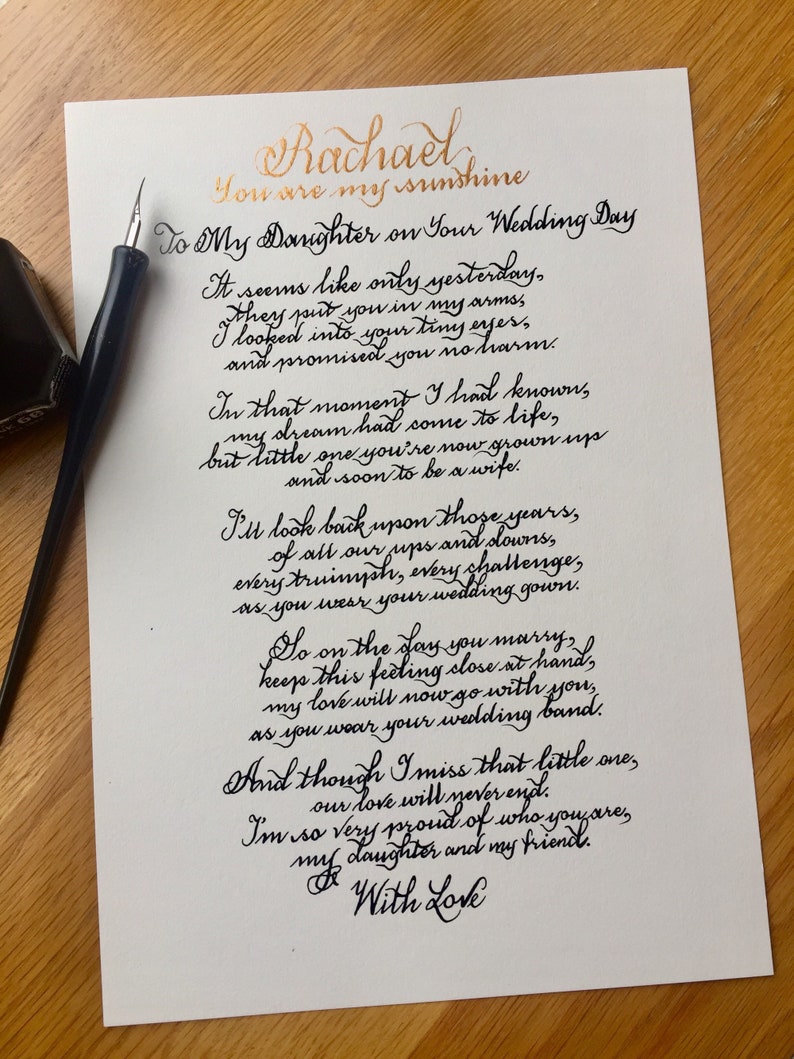 Rachael
You are my sunshine
To My Daughter on Your Wedding Day
It seems like only yesterday,
they put you in my arms,
I looked into your tiny eyes,
and promised you no harm.
In that moment I had known,
my dream had come to life,
but little one you're now grown up
and soon to be a wife.
I'll look back upon those years,
of all our ups and downs,
every truimph, every challenge,
as you wear your wedding gown.
So on the day you marry,
keep this feeling close at hand,
my love will now go with you,
as you wear your wedding band.
And though I miss that little one,
our love will never end.
I'm so very proud of who you are,
my daughter and my friend.
With Love